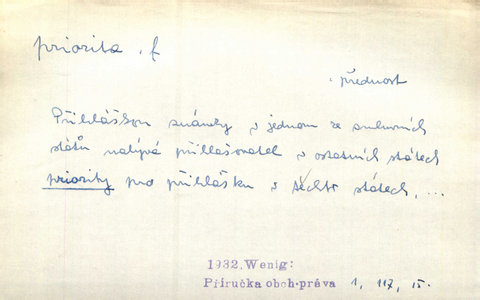 priorita . f
. přednost
Přihláškou známky v jednom ze smluvních
států nabývá přihlašovatel v ostatních státech
priority pro přihlášku v těchto státech, ...
1932, Wenig:
Příručka obch. práva 1, 117, 15.